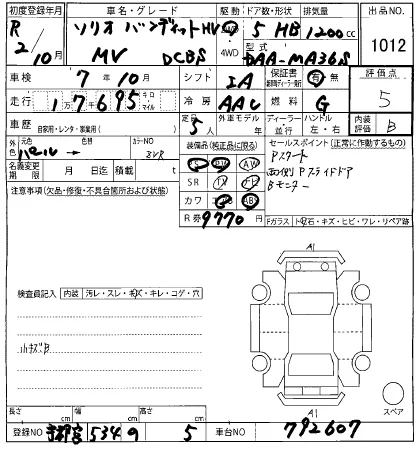 初度登録年月 車名・グレード 駆動 ドア数・形状 排気量 出品NO.
R 2/10月 ソリオ バンディット HV MV DCBS 2WD 4WD 5 HB 1200cc
型式 DAA-MA36S 1012
車検 7年10月 シフト IA 保証書 有 無 評価点
走行 1万7695 キロ マイル 冷房 AAC 燃料 G 5
車歴 自家用・レンタ・事業用( ) 定員 5人 外車モデル 年 ディーラー 並行 ハンドル 左・右 内装評価 B
外色 元色 パール 色替 カラーNO ZVR 装備品(純正品に限る) セールスポイント(正常に作動するもの)
名義変更期限 月 日迄 積載 t PS PW AW Pスタート
SR ナビ 両側Pスライドドア
注意事項(欠品・修復・不具合箇所および状態) カワ ABS Bモニター
R券 9770円 Fガラス トビ石・キズ・ヒビ・ワレ・リペア跡
検査員記入 内装 汚レ・スレ・キズ・キレ・コゲ・穴
A1
小キズB
A1
スペア
長さ cm 幅 cm 高さ cm
登録NO 京都 534 5 車台NO 792607